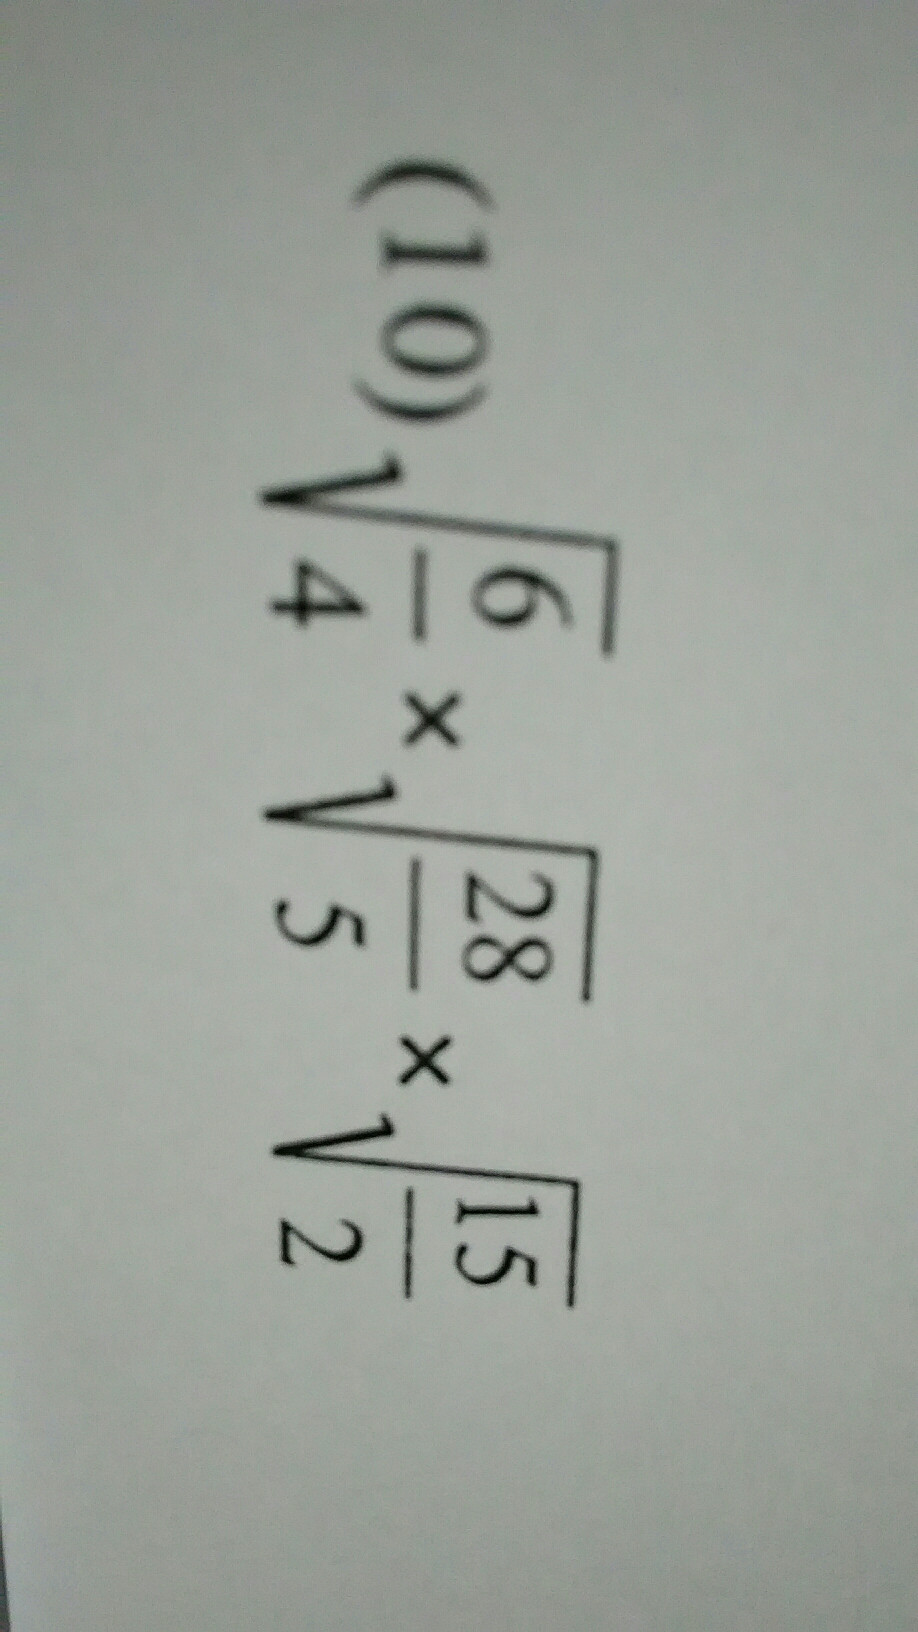 (10) √(6/4) × √(28/5) × √(15/2)